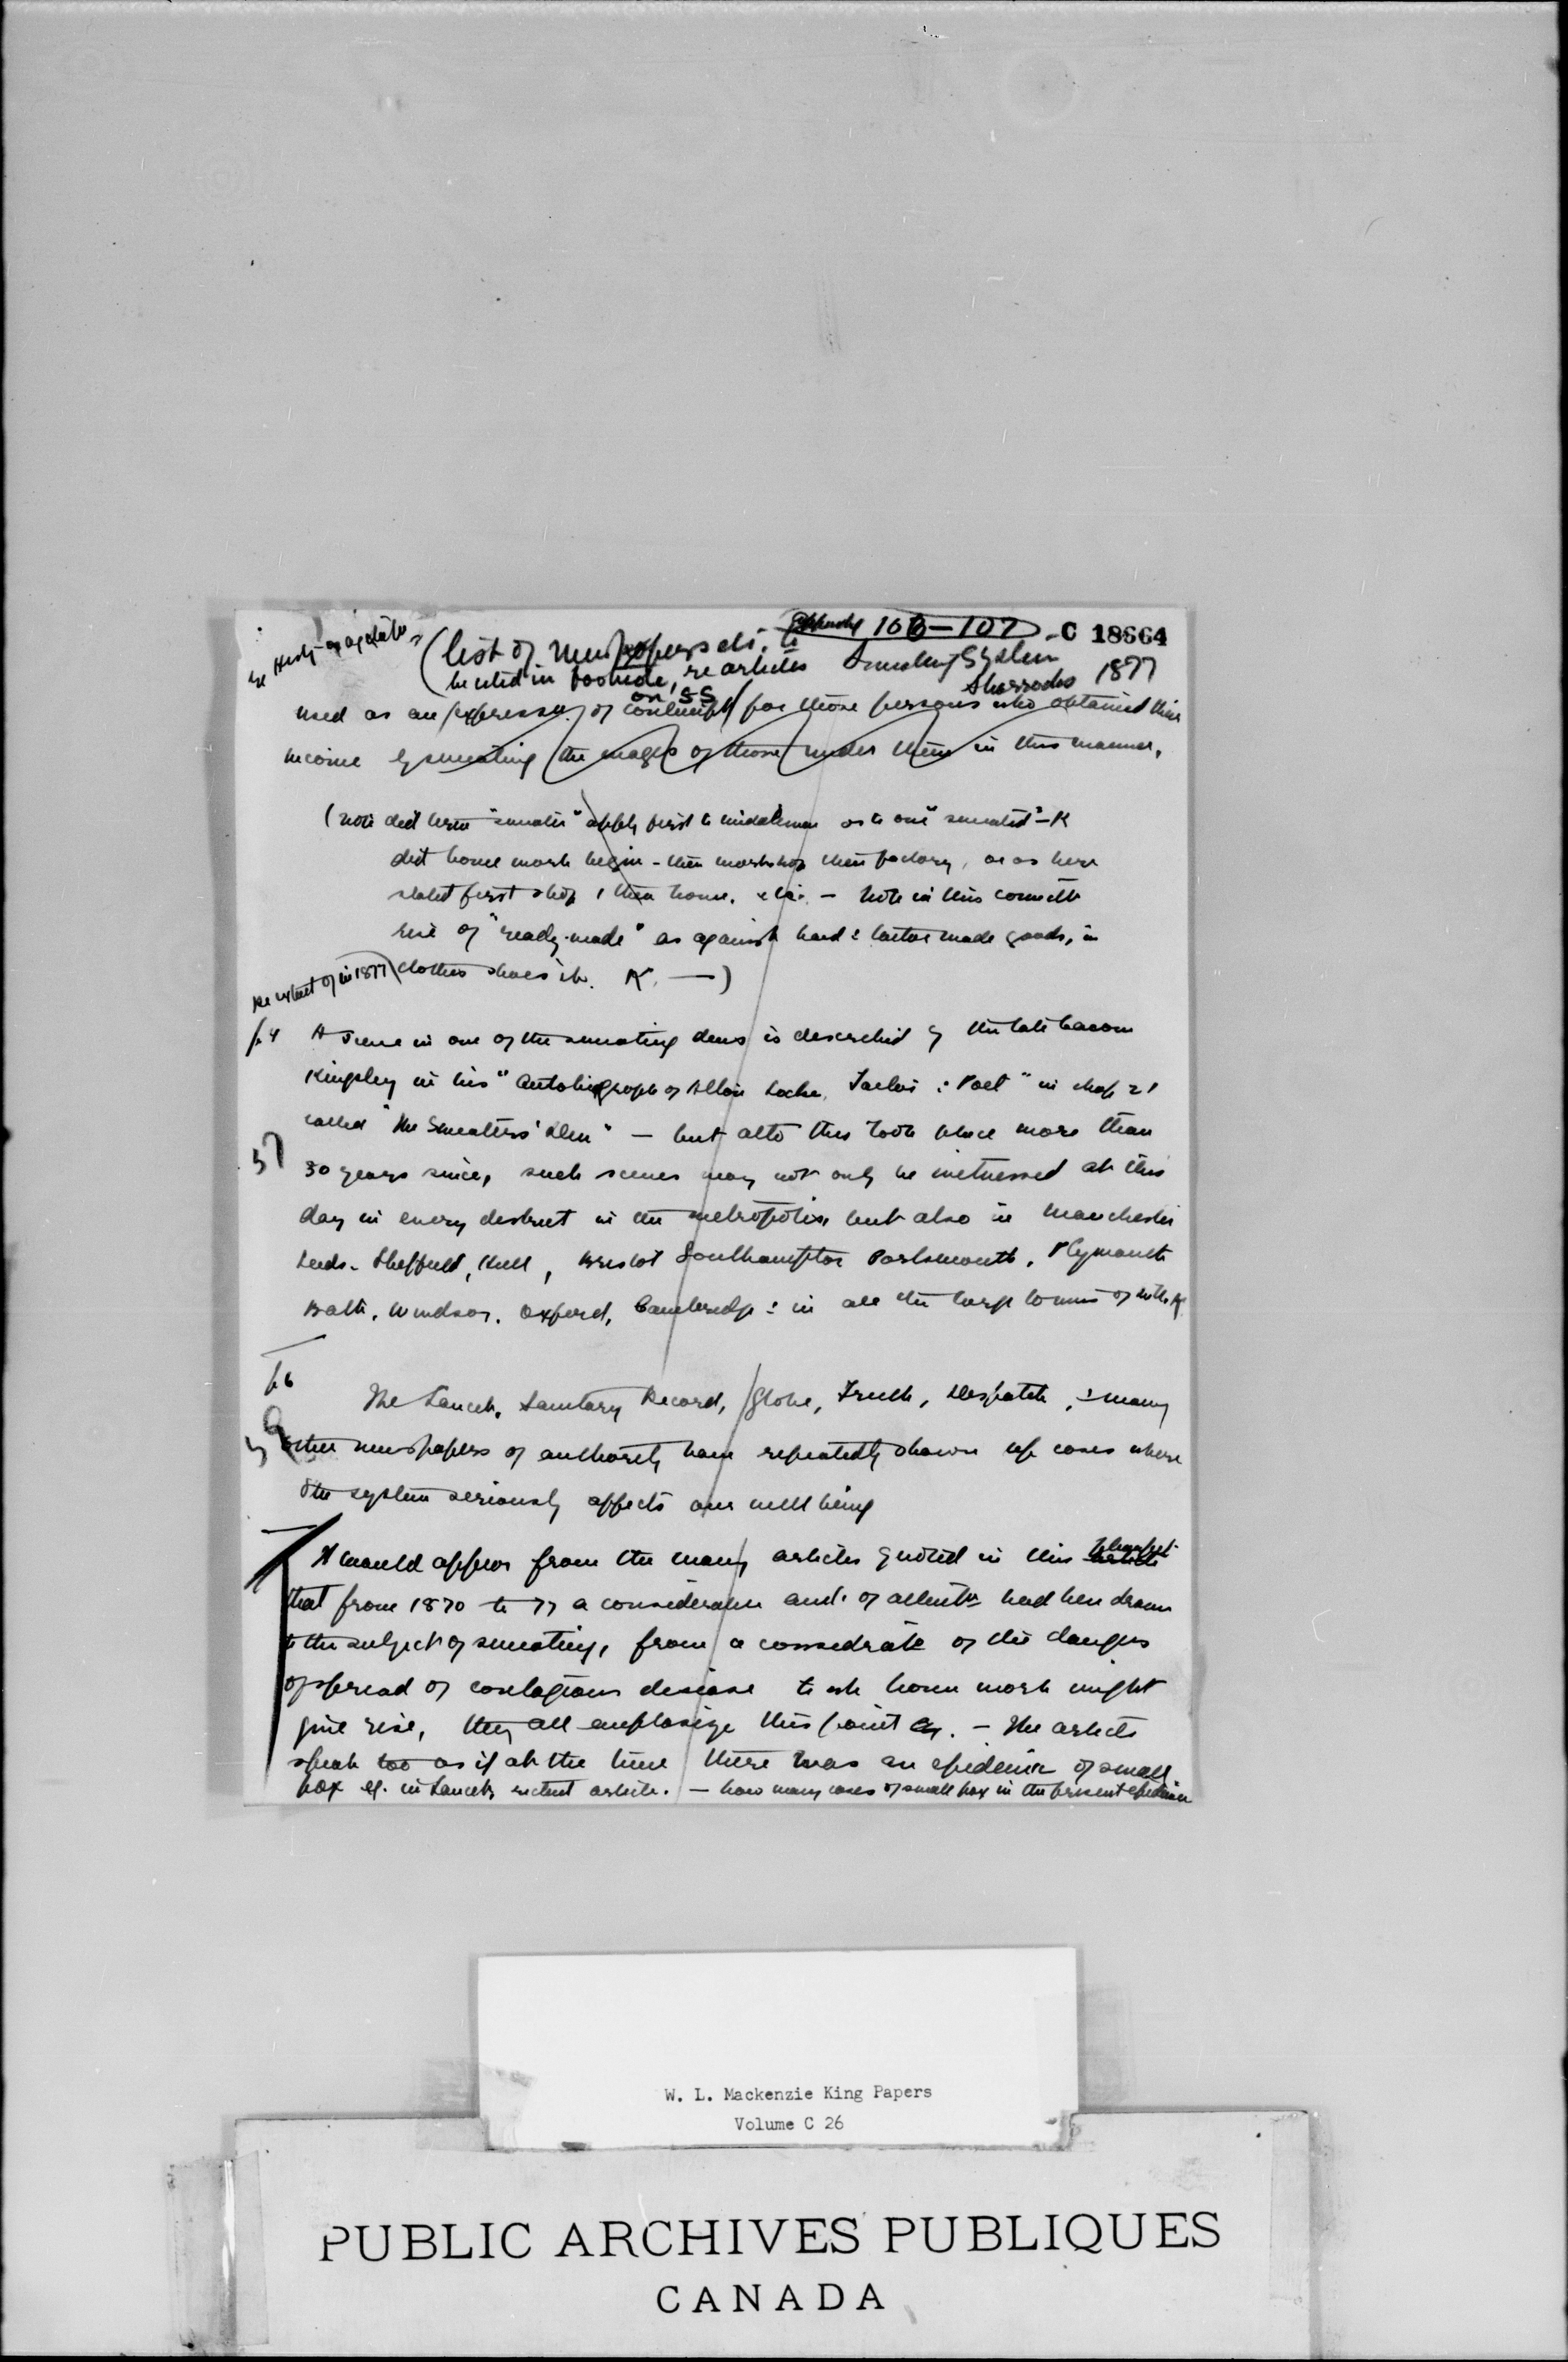 106-107 C 18664
(list of newspapers etc. to
be cited in footnote, re articles Sweating System
on SS Sherrocks 1877
used as an expression of contempt for those persons who obtained their
income by sweating the wages of those under them in this manner.
(note did term "sweater" apply first to middleman or to one "sweated" - K
did home work begin - then workshop then factory, or as here
stated first shop, then home. etc. - note in this connectn
rise of "ready-made" as against hand & tailor made goods, in
clothes shoes etc. K. —)
re extent of in 1877
p. 4 A scene in one of the sweating dens is described by the late Canon
Kingsley in his "Autobiography of Alton Locke, Tailor & Poet" in chap 21
called "The Sweaters' Den" - but altho this took place more than
57
30 years since, such scenes may not only be witnessed at this
day in every district in the metropolis but also in Manchester
Leeds. Sheffield, Hull, Bristol Southampton Portsmouth, Plymouth
Bath, Windsor, Oxford, Cambridge & in all the large towns of
p. 6
The Lancet, Sanitary Record, Globe, Truth, Despatch, & many
59
other newspapers of authority have repeatedly shown up cases where
the system seriously affects our well being
It would appear from the many articles quoted in this pamphlet
that from 1870 to 77 a considerable amt. of attentn had been drawn
to the subject of sweating, from a consideratn of the dangers
of spread of contagious disease to wh home work might
give rise, they all emphasize this point - The articles
speak too as if at the time there was an epidemic of small
pox eg. in Lancets article. - how many cases of small pox in the present epidemic
W. L. Mackenzie King Papers
Volume C 26
PUBLIC ARCHIVES PUBLIQUES
CANADA